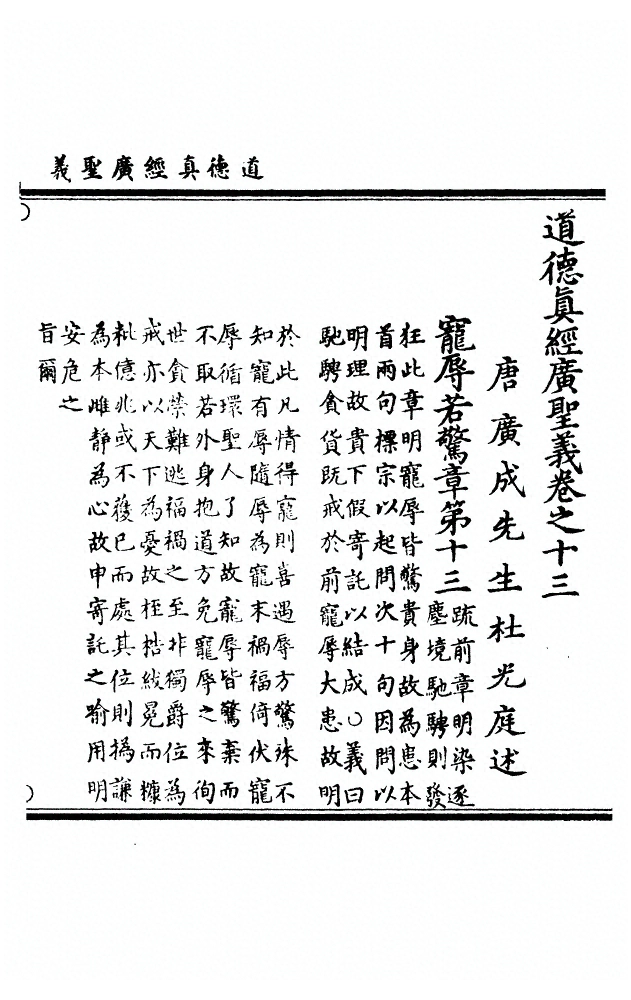 道德真經廣聖義
道德眞經廣聖義卷之十三
唐廣成先生杜光庭述
寵辱若驚章第十三
疏前章明染逐
塵境馳騁則發
狂此章明寵辱皆驚貴身故為患本
首兩句標宗以起問次十句因問以
明理故貴下假寄託以結成○義曰
馳騁貪貨既戒於前寵辱大患故明
於此凡情得寵則喜遇辱方驚殊不
知寵有辱隨辱為寵末禍福倚伏寵
辱循環聖人了知故寵辱皆驚棄而
不取若外身抱道方免寵辱之來徇
世貪榮難逃福禍之至非獨爵位為
戒亦以天下為憂故桎梏紱冕而糠
粃億兆或不獲已而處其位則撝謙
為本雌靜為心故申寄託之喻用明
安危之
旨爾